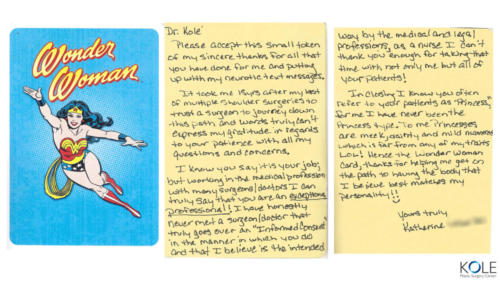 Wonder
Woman
Dr. Kole'
Please accept this small token
of my sincere thanks for all that
you have done for me and putting
up with my neurotic text messages.
It took me 15yrs after my best
of multiple shoulder surgeries to
trust a surgeon to journey down
this path and words truly can't
express my gratitude in regards
to your patience with all my
questions and concerns.
I know you say it is your job;
but working in the medical profession
with many surgeons/doctors I can
truly say that you are an exceptional
professional! I have honestly
never met a surgeon/doctor that
truly goes over an "Informed Consent"
in the manner in which you do
and that I believe is the intended
way by the medical and legal
professions, as a nurse I can't
thank you enough for taking that
time with not only me but all of
your patients!
In closing I know you often
refer to your patients as "Princess,"
for me I have never been the
Princess type. To me "Princesses
are meek, dainty and mild mannered
which is far from any of my traits
LOL! Hence the Wonder Woman
card, thanks for helping me get on
the path to having the body that
I believe best matches my
personality!!
Yours truly,
Katherine
KOLE
Plastic Surgery Center